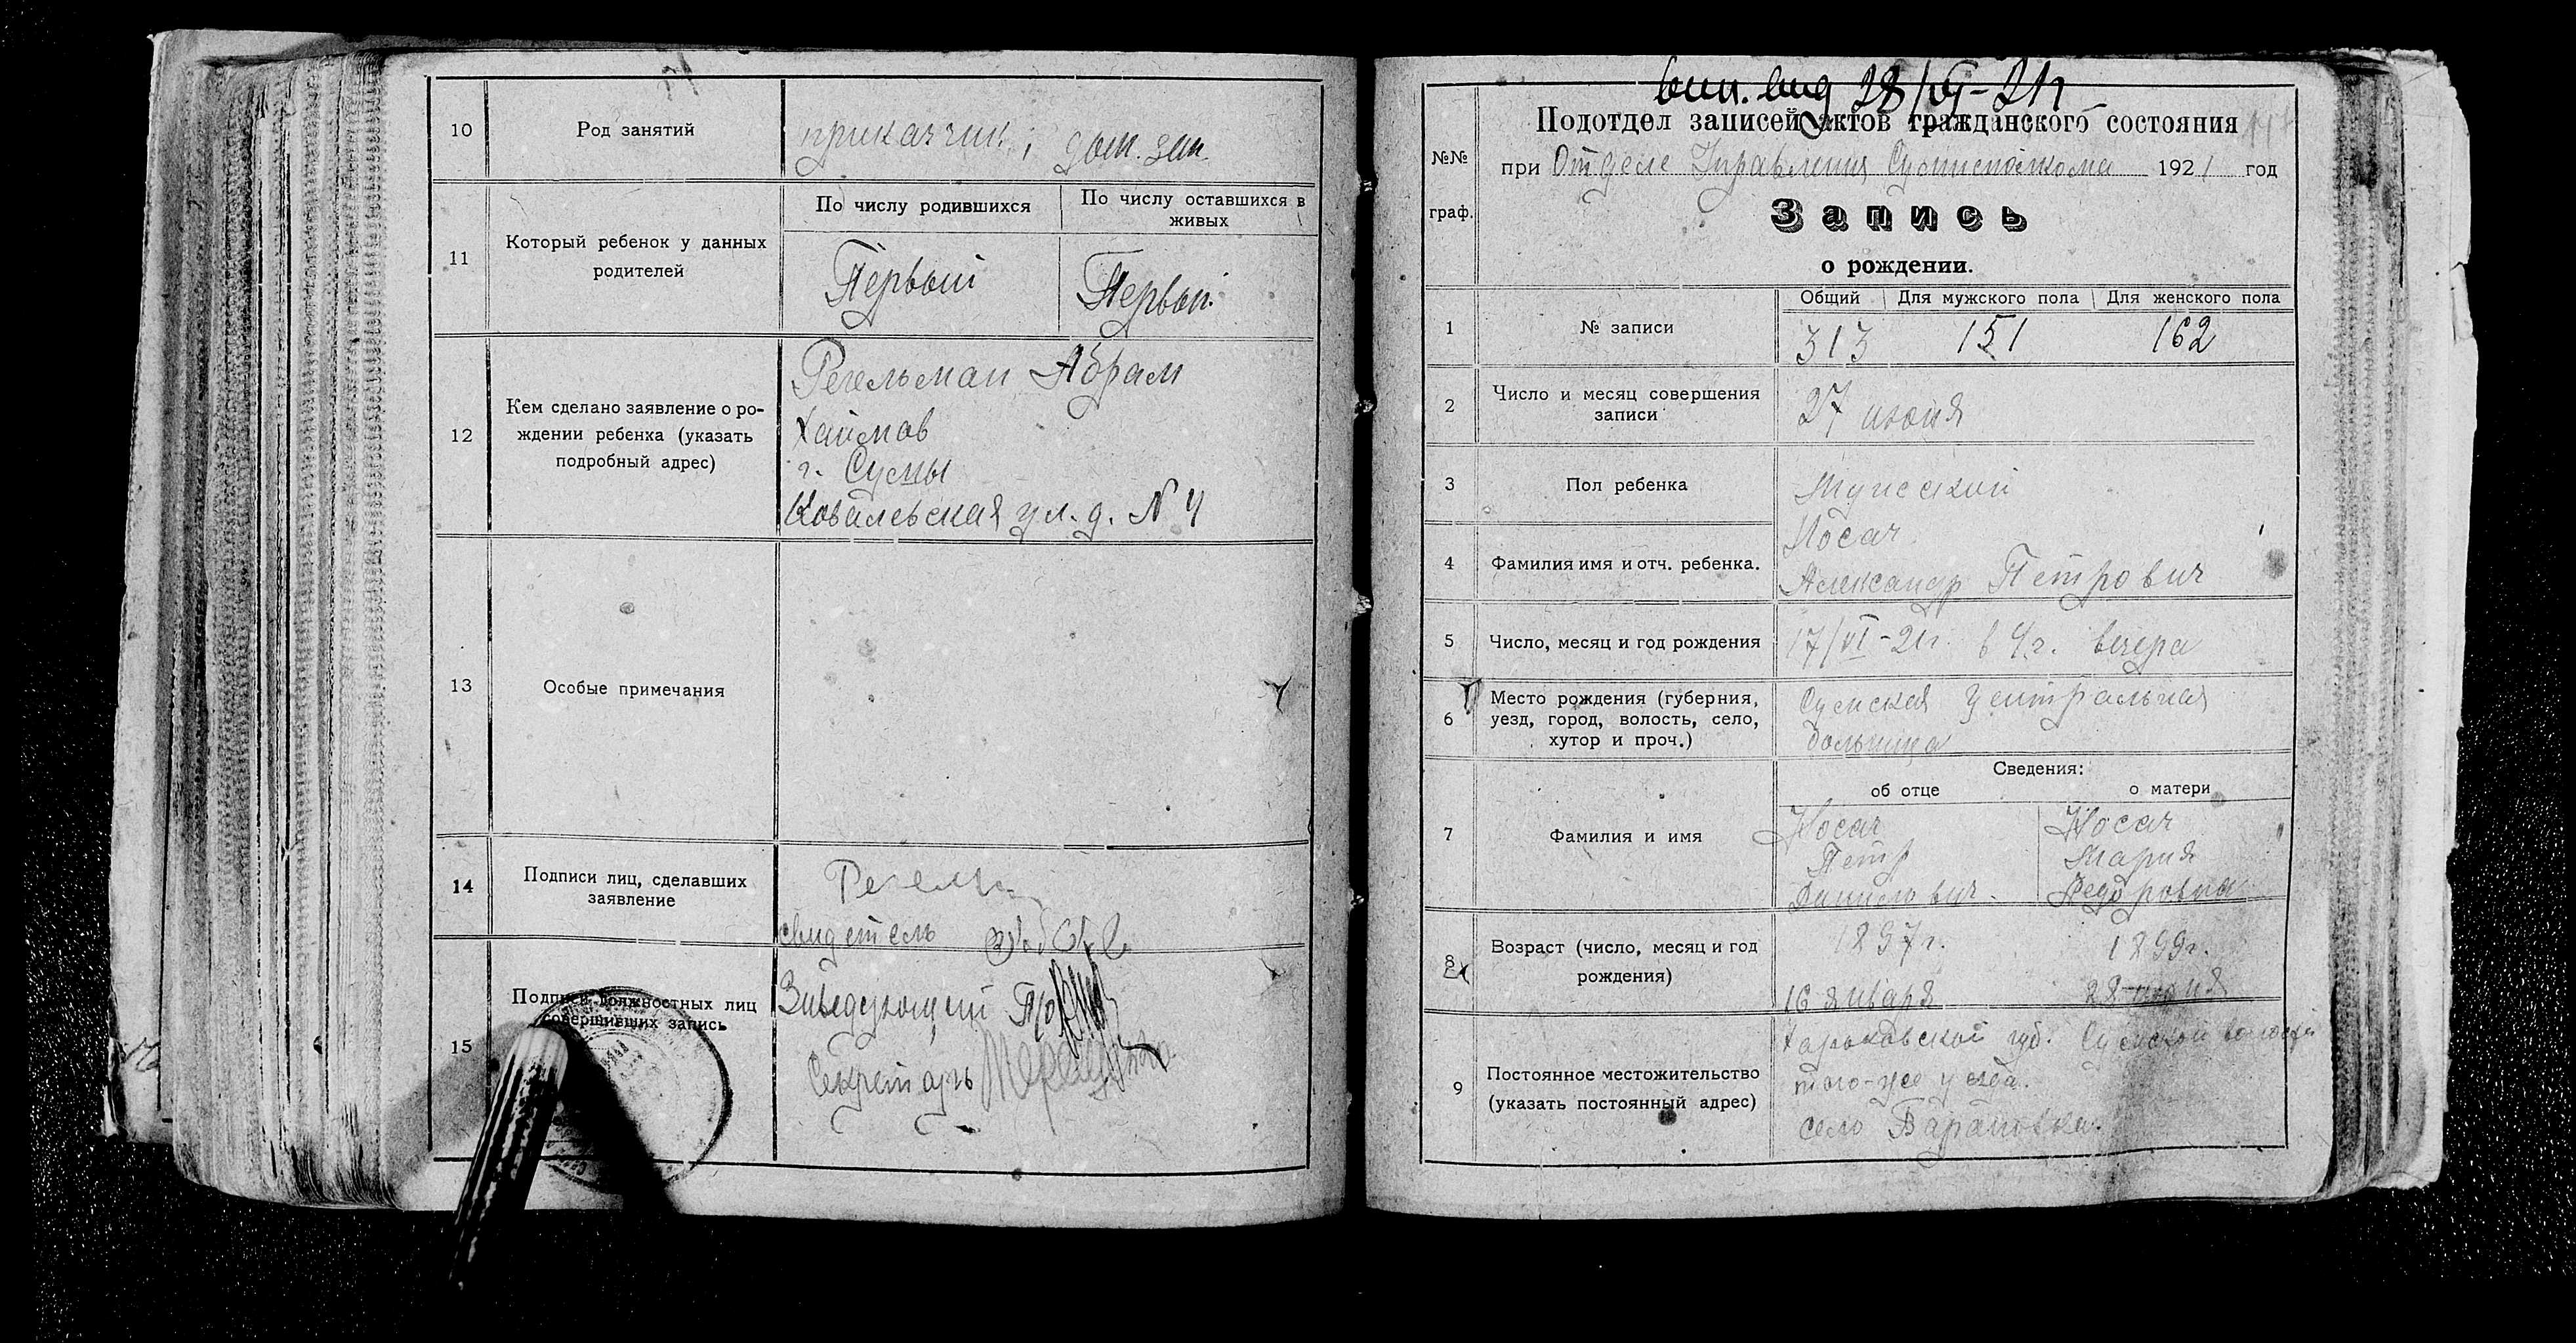 10
Род занятий
приказчик; дом. зан.
11
Который ребенок у данных
родителей
По числу родившихся
По числу оставшихся в
живых
Первый
Первый
12
Кем сделано заявление о ро-
ждении ребенка (указать
подробный адрес)
Регельман Абрам
Хаймов
г. Сумы
Ковалевская ул. д. N 4
13
Особые примечания
14
Подписи лиц, сделавших
заявление
свидетель
15
Подписи должностных лиц
совершивших запись
Заведующий
Секретарь
вып. вид 28/VI-21г
Подотдел записей актов гражданского состояния
№№
граф.
при Отделе Управления Сумисполкома 1921 год
Запись
о рождении.
1
№ записи
Общий
Для мужского пола
Для женского пола
313
151
162
2
Число и месяц совершения
записи
27 июня
3
Пол ребенка
Мужской
4
Фамилия имя и отч. ребенка.
Носач
Александр Петрович
5
Число, месяц и год рождения
17/VI-21г. в 4 г. вечера
6
Место рождения (губерния,
уезд, город, волость, село,
хутор и проч.)
Сумская центральная
больница
7
Фамилия и имя
Сведения:
об отце
о матери
Носач
Петр
Данилович.
Носач
Мария
Федоровна
8
Возраст (число, месяц и год
рождения)
1897г.
16 января
1899г.
28
9
Постоянное местожительство
(указать постоянный адрес)
Харьковской губ. Сумской волости
того-же уезда.
село Барановка.